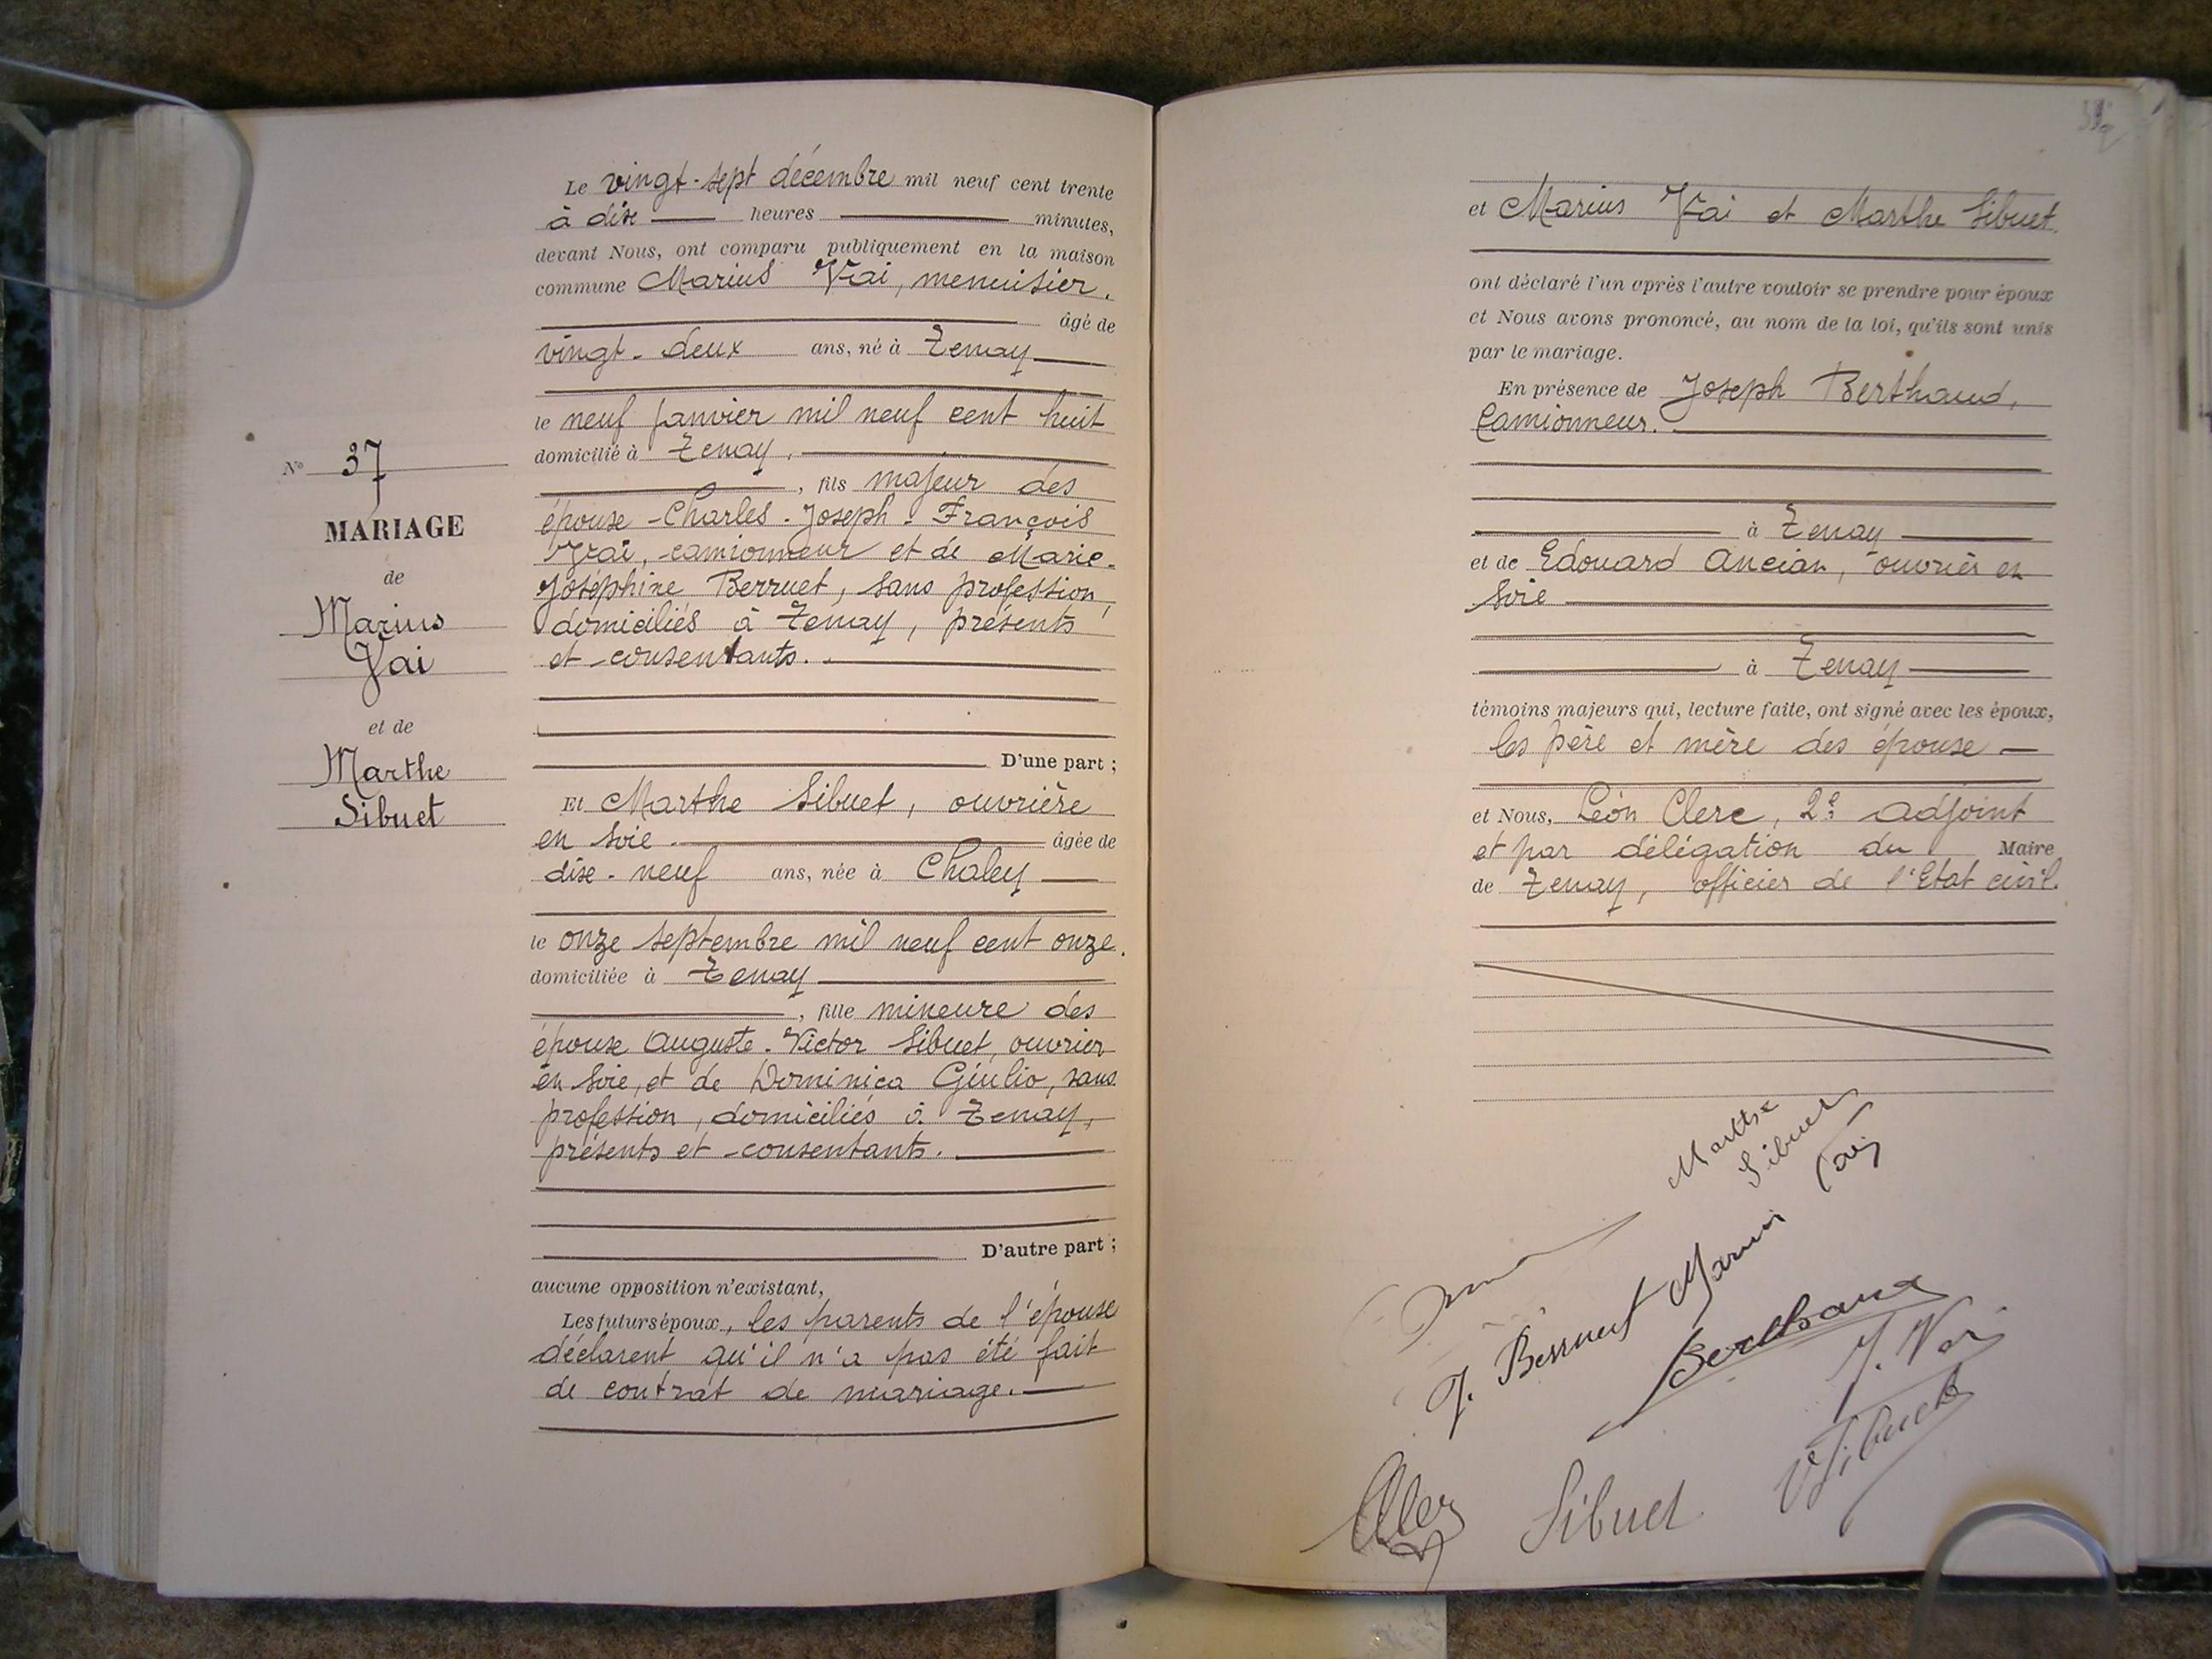 N° 37
MARIAGE
de
Marius
Vai
et de
Marthe
Sibuet
Le vingt-sept décembre mil neuf cent trente
à dix heures minutes,
devant Nous, ont comparu publiquement en la maison
commune Marius Vai, menuisier.
âgé de
vingt-deux ans, né à Tenay
le neuf janvier mil neuf cent huit
domicilié à Tenay.
, fils majeur des
époux Charles-Joseph-François
Vai, camionneur et de Marie-
Joséphine Berruet, sans profession,
domiciliés à Tenay, présents
et consentants.
D'une part ;
Et Marthe Sibuet, ouvrière
en soie. âgée de
dix-neuf ans, née à Chaley
le onze septembre mil neuf cent onze.
domiciliée à Tenay
, fille mineure des
époux Auguste-Victor Sibuet, ouvrier
en soie, et de Dominica Giulio, sans
profession, domiciliés à Tenay,
présents et consentants.
D'autre part ;
aucune opposition n'existant,
Les futurs époux, les parents de l'épouse
déclarent qu'il n'a pas été fait
de contrat de mariage.
et Marius Vai et Marthe Sibuet.
ont déclaré l'un après l'autre vouloir se prendre pour époux
et Nous avons prononcé, au nom de la loi, qu'ils sont unis
par le mariage.
En présence de Joseph Berthaud,
Camionneur.
à Tenay
et de Edouard Ancian, ouvrier en
soie
à Tenay
témoins majeurs qui, lecture faite, ont signé avec les époux,
les père et mère des époux
et Nous, Léon Clerc, 2e adjoint
et par délégation du Maire
de Tenay, officier de l'Etat civil.
Marthe
Sibuet
Vai
J. Berruet Marius
Berthaud
J. Vai
V Sibuet
Sibuet